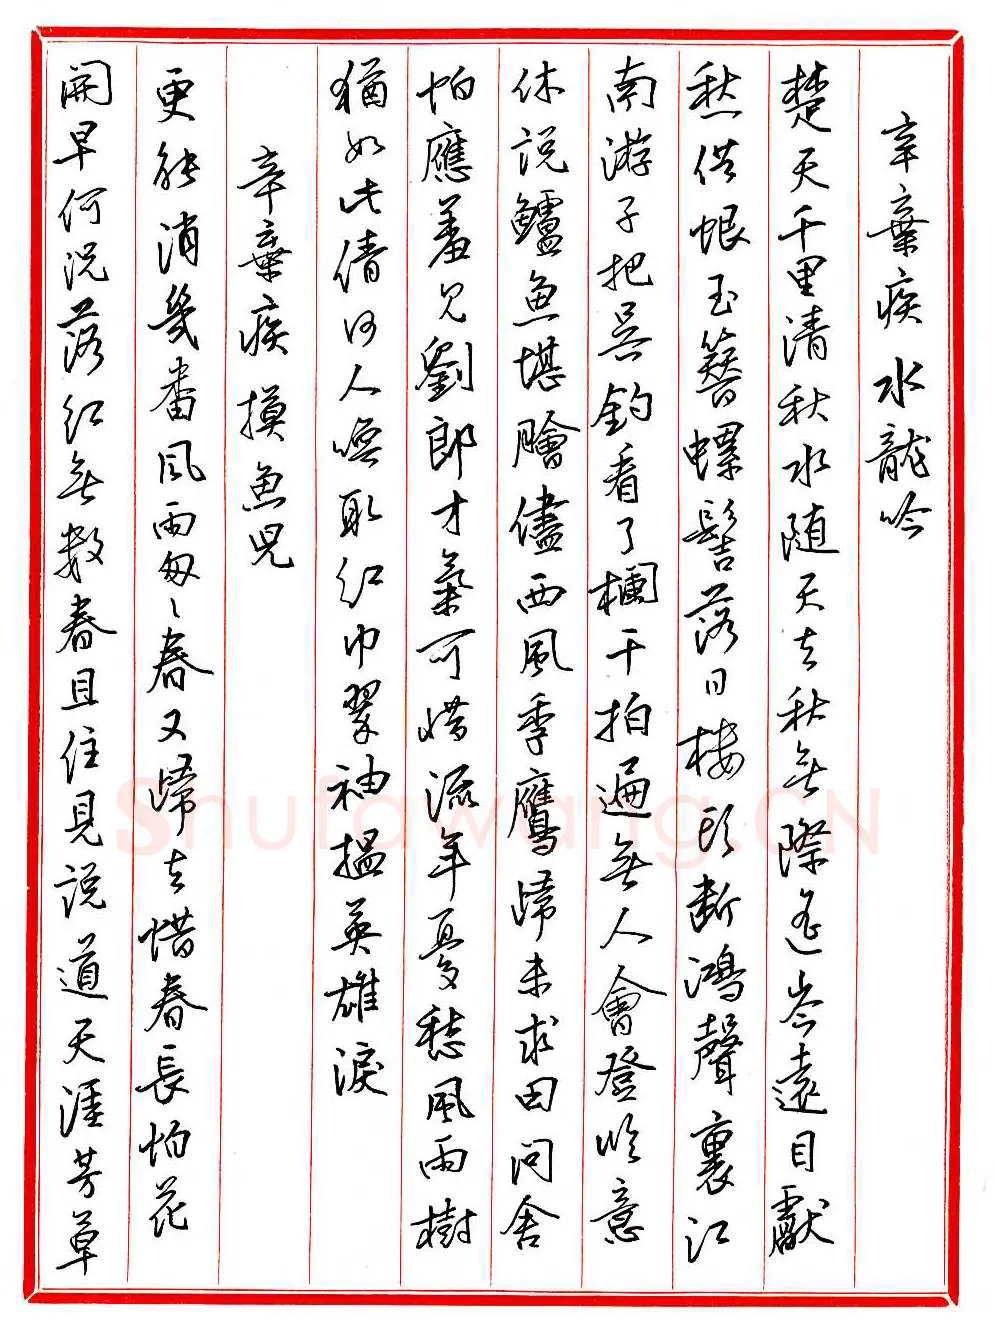 辛棄疾 水龍吟
楚天千里清秋水随天去秋無際遥岑遠目獻
愁供恨玉簪螺髻落日樓頭斷鴻聲裏江
南游子把吴鈎看了欄干拍遍無人會登临意
休説鱸魚堪膾儘西風季鷹歸未求田問舍
怕應羞見劉郎才氣可惜流年憂愁風雨樹
猶如此倩何人喚取红巾翠袖揾英雄淚
辛棄疾 摸魚兒
更能消幾番風雨匆々春又歸去惜春長怕花
開早何況落红無數春且住見説道天涯芳草
Shufawang.CN